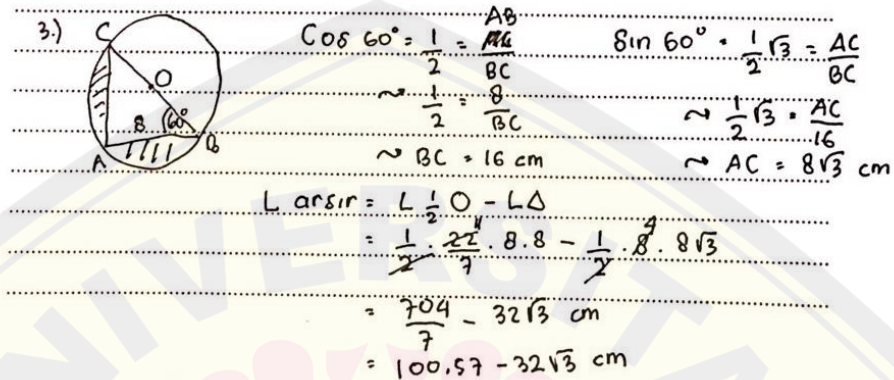 3.)
C
O
8
60°
A
B
Cos 60° = 1/2 = AB/BC
~ 1/2 = 8/BC
~ BC = 16 cm
Sin 60° = 1/2 √3 = AC/BC
~ 1/2 √3 = AC/16
~ AC = 8√3 cm
L arsir = L 1/2 O - L△
= 1/2 . 22/7 . 8.8 - 1/2 . 8 . 8√3
11
4
= 704/7 - 32√3 cm
= 100.57 - 32√3 cm
UNIVERSITA